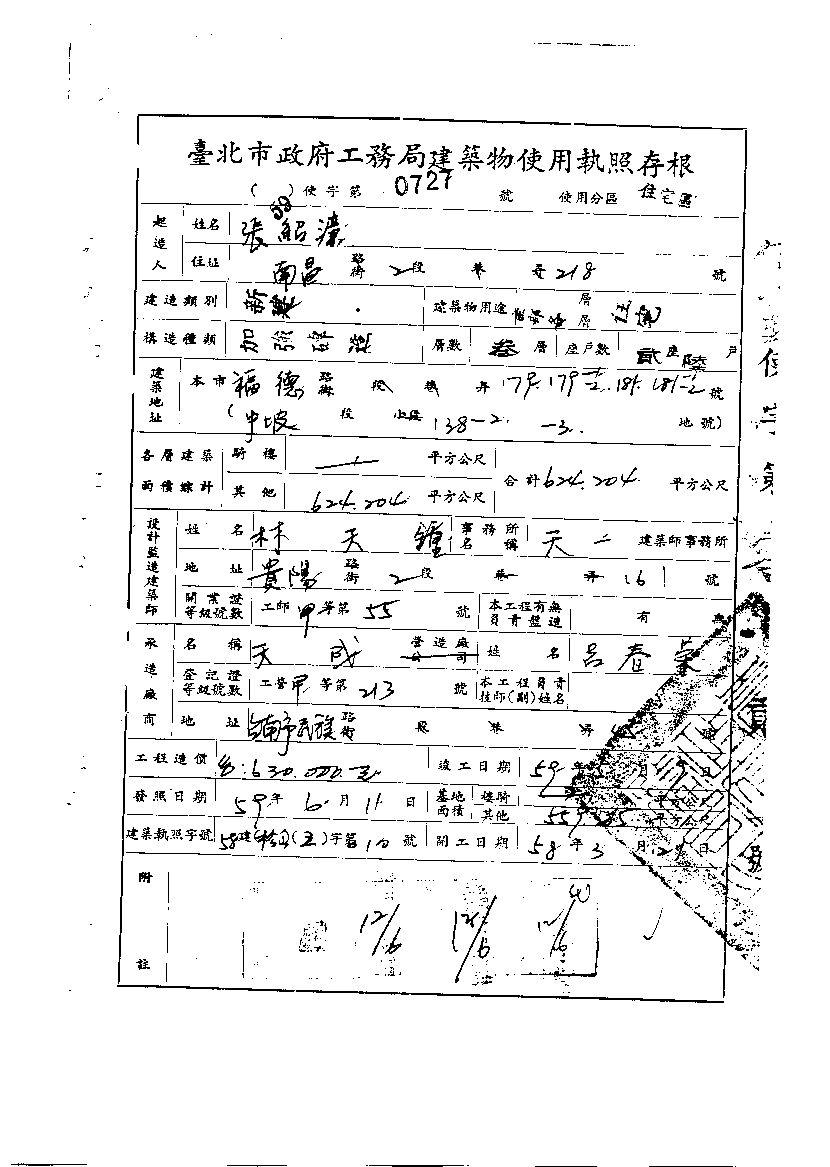 臺北市政府工務局建築物使用執照存根
(59)使字第 0727 號 使用分區 住宅區
起造人 姓名 張紹濂
住址 南昌 路街 2段 巷 弄218 號
建造類別 新建 建築物用途 層層 住宅
構造種類 加強磚造 層數 叁層 座戶數 貳座陸戶
建築地址 本市福德路街 段 巷 弄179.179-1.181.181-1號
(中坡 段 小段 138-2 -3 地號)
各層建築面積總計 騎樓 平方公尺 合計624.204 平方公尺
其他 624.204 平方公尺
設計監造建築師 姓名 林天鐘 事務所名稱 天一 建築師事務所
地址 貴陽路街 2段 巷 弄161號
開業證等級號數 工師甲等第55號 本工程有無負責監造 有 無
承造廠商 名稱 天成 營造廠公司 姓名 呂春榮
登記證等級號數 工營甲等第213號 本工程負責技師(副)姓名
地址 台南市民族路街 段 巷 弄 號
工程造價 630.000 竣工日期 59年 月 9日
發照日期 59年6月11日 基地面積 騎樓 平方公尺
其他 平方公尺
建築執照字號 58建 字第10號 開工日期 58年3月 日
附註 12/6 12/6 12/6